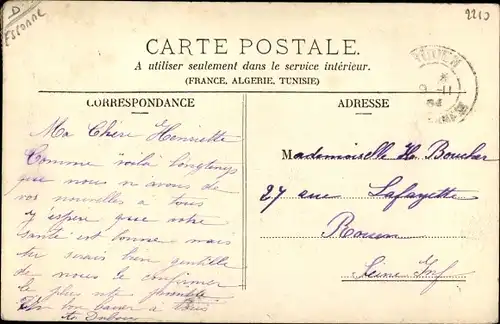 D
ESCORNE
2210
CARTE POSTALE.
A utiliser seulement dans le service intérieur.
(FRANCE, ALGERIE, TUNISIE)
CORRESPONDANCE
Ma Chère Henriette
Comme voila longtemps
que nous n avons de
vos nouvelles a tous
j espere que votre
santé est bonne mais
tu serais bien gentille
de nous le confirmer
le plus vite possible
Un bon baiser a tous
ADRESSE
Mademoiselle H. Boucher
27 rue Lafayette
Rouen
Seine Inf